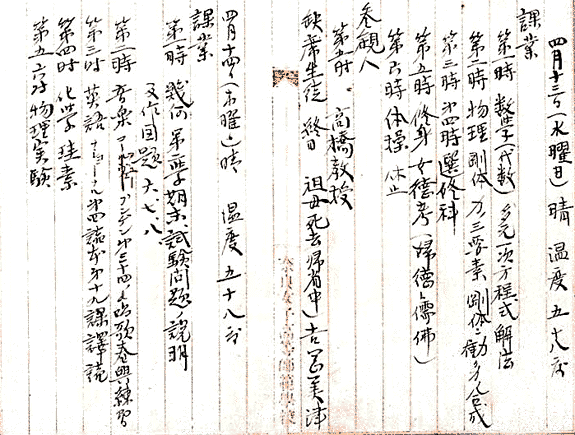 四月十三日(水曜日)晴 温度五十八度
課業
第一時 数学(代数)多元一次方程式解法
第二時 物理 剛体 力ノ三要素 剛体ニ働ク力ノ合成
第三時 第四時 選修科
第五時 修身 女徳考(婦徳ト儒佛)
第六時 体操 休止
参観人
第五時 高橋教授
欠席生徒 終日 祖母死去帰省中 吉 美津
奈良女子高等師範学校
四月十四日(木曜)晴 温度五十八度
課業
第一時 幾何 第 学期末試験問題ノ説明
又作図題六、七、八
第二時 音楽 第三十四 唱歌春興練習
第三時 英語 ナショナル第四読本第十九課訳読
第四時 化学 珪素
第五六時 物理実験